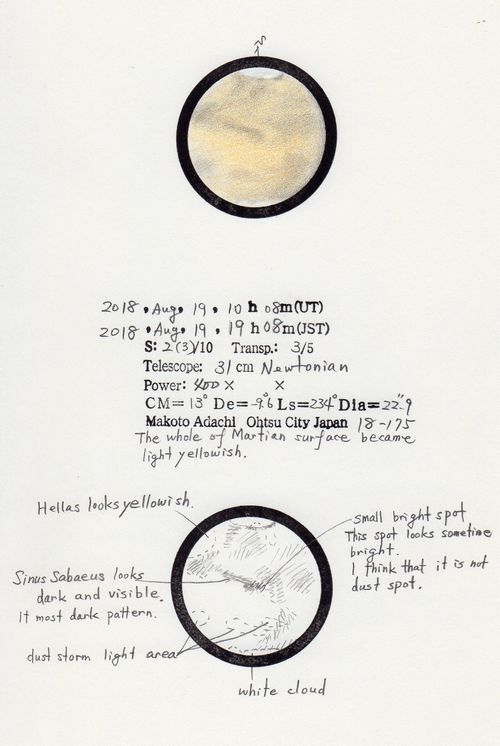 S
2018, Aug, 19, 10 h 08m(UT)
2018, Aug, 19, 19 h 08m(JST)
S: 2(3)/10 Transp.: 3/5
Telescope: 31 cm Newtonian
Power: 400 × ×
CM= 13° De= -9.°6 Ls=234° Dia= 22."9
Makoto Adachi Ohtsu City Japan 18-175
The whole of Martian surface became
light yellowish.
Hellas looks yellowish.
small bright spot
This spot looks sometime
bright.
I think that it is not
dust spot.
Sinus Sabaeus looks
dark and visible.
It most dark pattern.
dust storm light area
white cloud